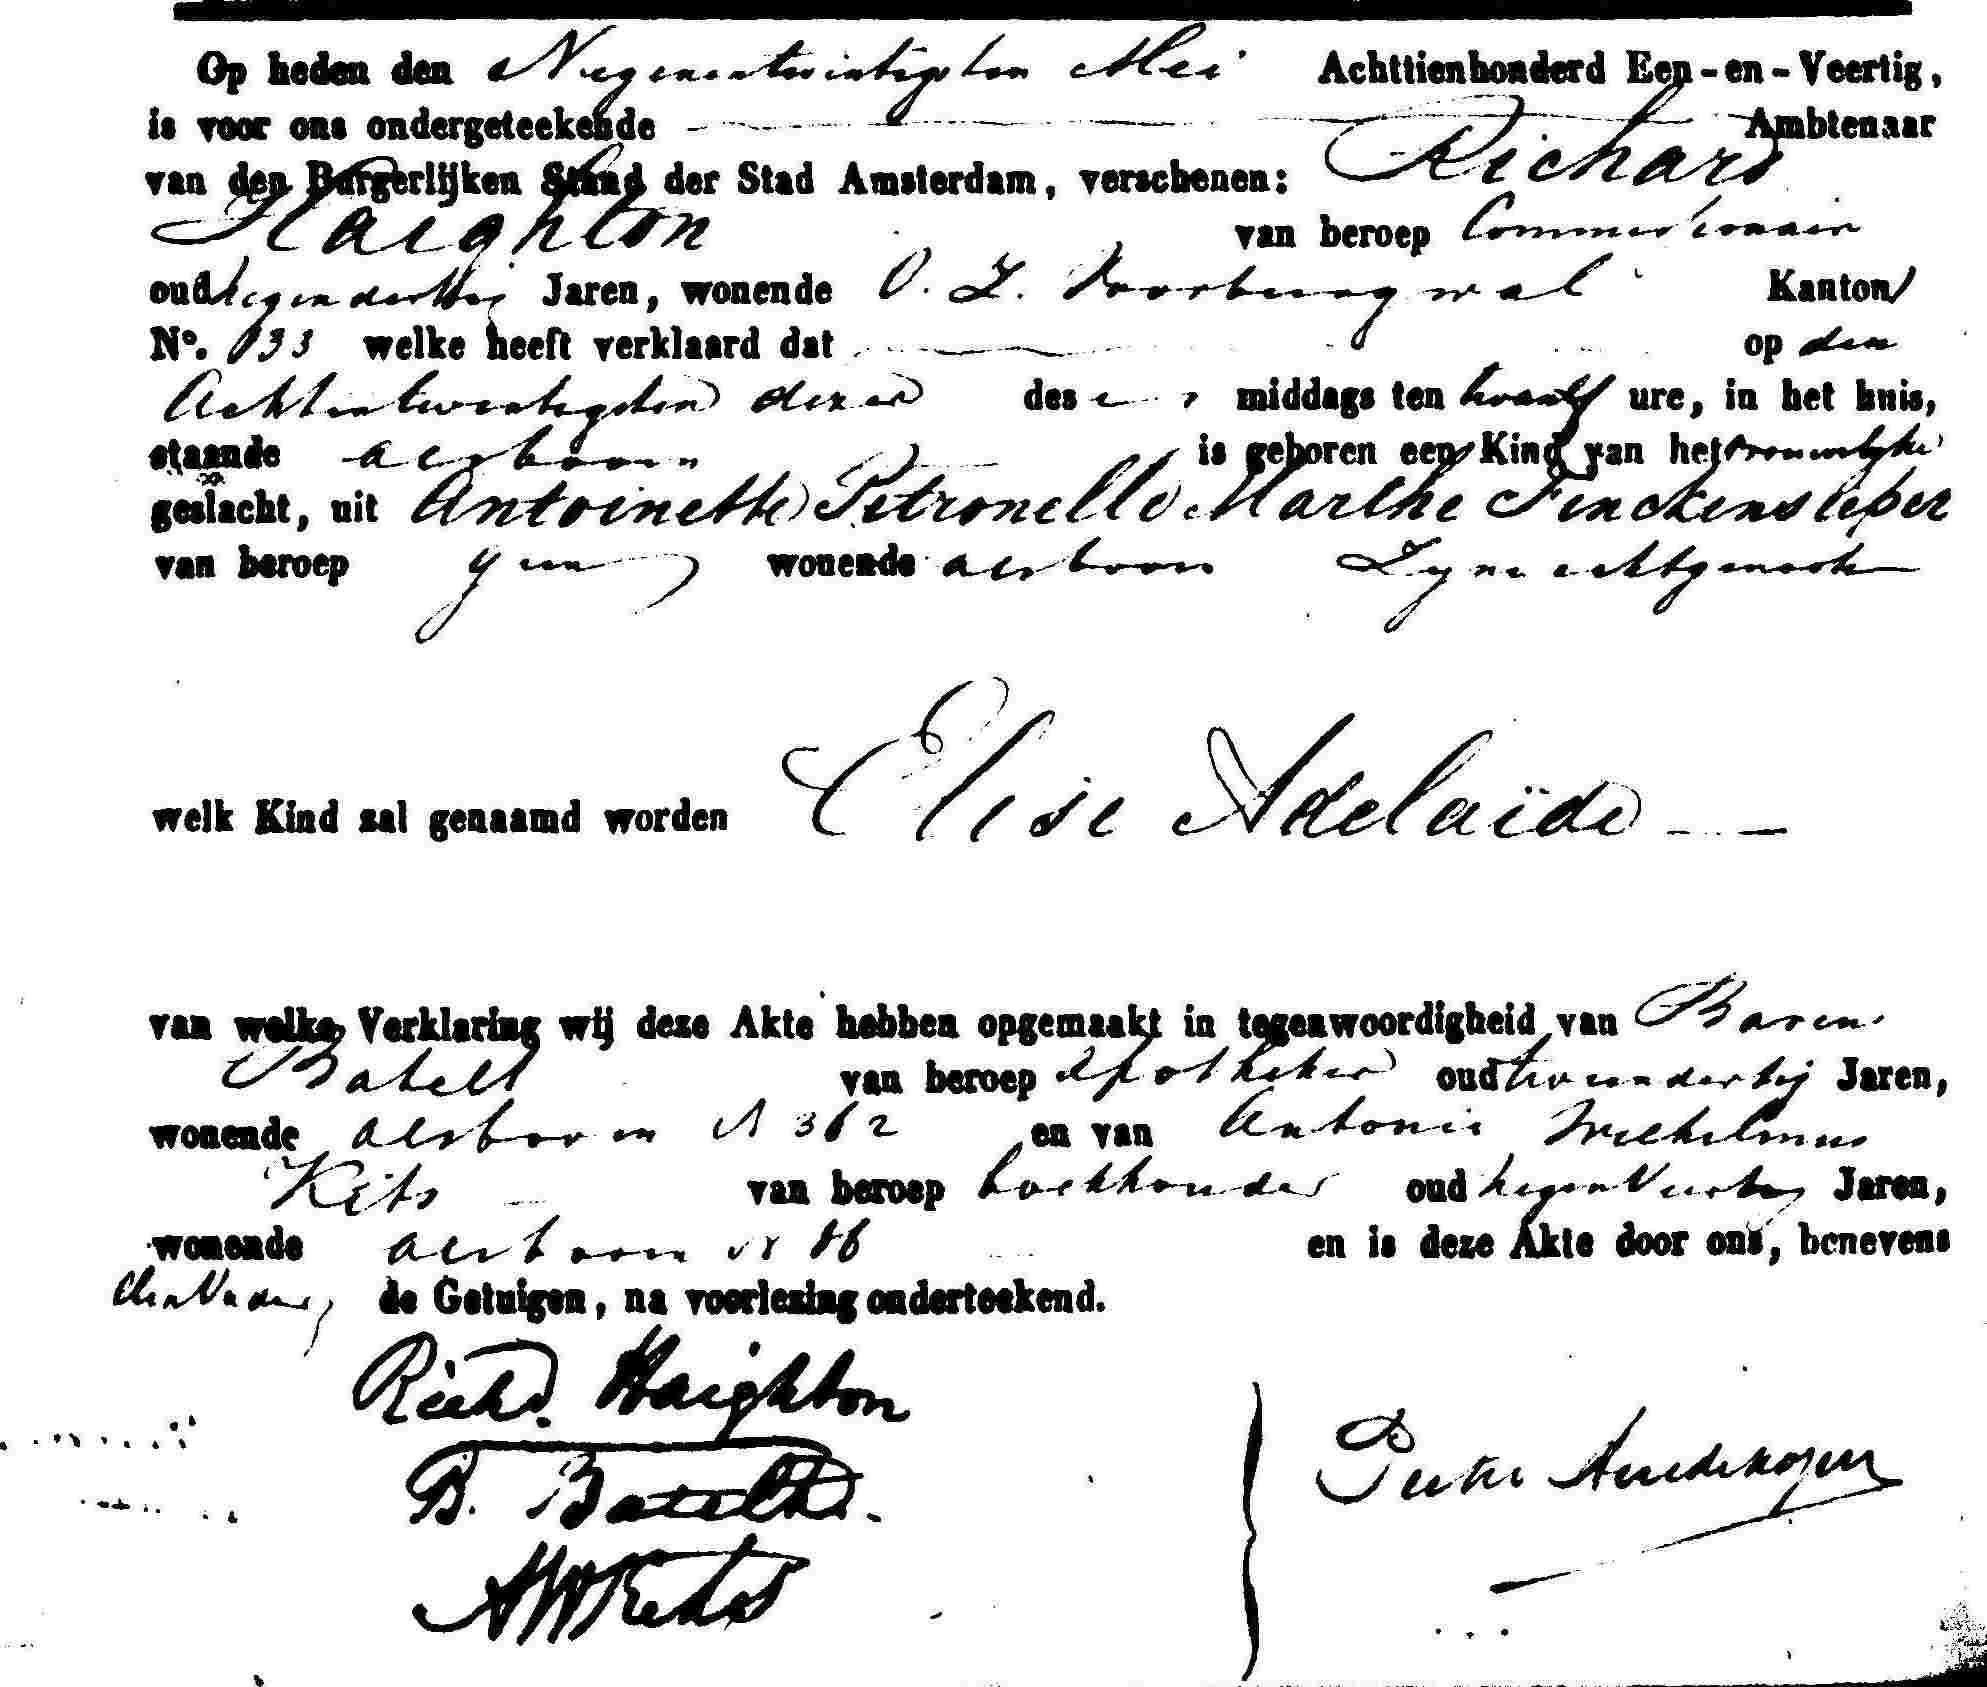 Op heden den Negenentwintigsten Mei Achttienhonderd Een-en-Veertig,
is voor ons ondergeteekende Ambtenaar
van den Burgerlijken Stand der Stad Amsterdam, verschenen: Richard
Haighton van beroep Commissionair
oud negendertig Jaren, wonende O. Z. Voorburgwal Kanton
N°. 133 welke heeft verklaard dat op den
Achtentwintigsten dezer des middags ten twaalf ure, in het huis,
staande aldaar is geboren een Kind van het vrouwelijke
geslacht, uit Antoinette Petronelle Marthe Finckensieper
van beroep geen wonende aldaar Zyne echtgenoote
welk Kind zal genaamd worden Elise Adelaïde
van welke Verklaring wij deze Akte hebben opgemaakt in tegenwoordigheid van Barend
Batelt van beroep Apotheker oud tweendertig Jaren,
wonende N 362 en van Antonie Wilhelmus
Kets van beroep boekhouder oud negenveertig Jaren,
wonende N 86 en is deze Akte door ons, benevens
den Vader, de Getuigen, na voorlezing onderteekend.
Richd. Haighton
B. Batelt
AWKets